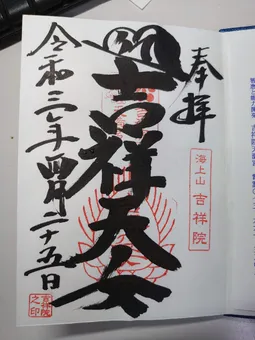 奉拝
海上山 吉祥院
吉祥天女
令和三年四月二十五日
吉祥院
之印